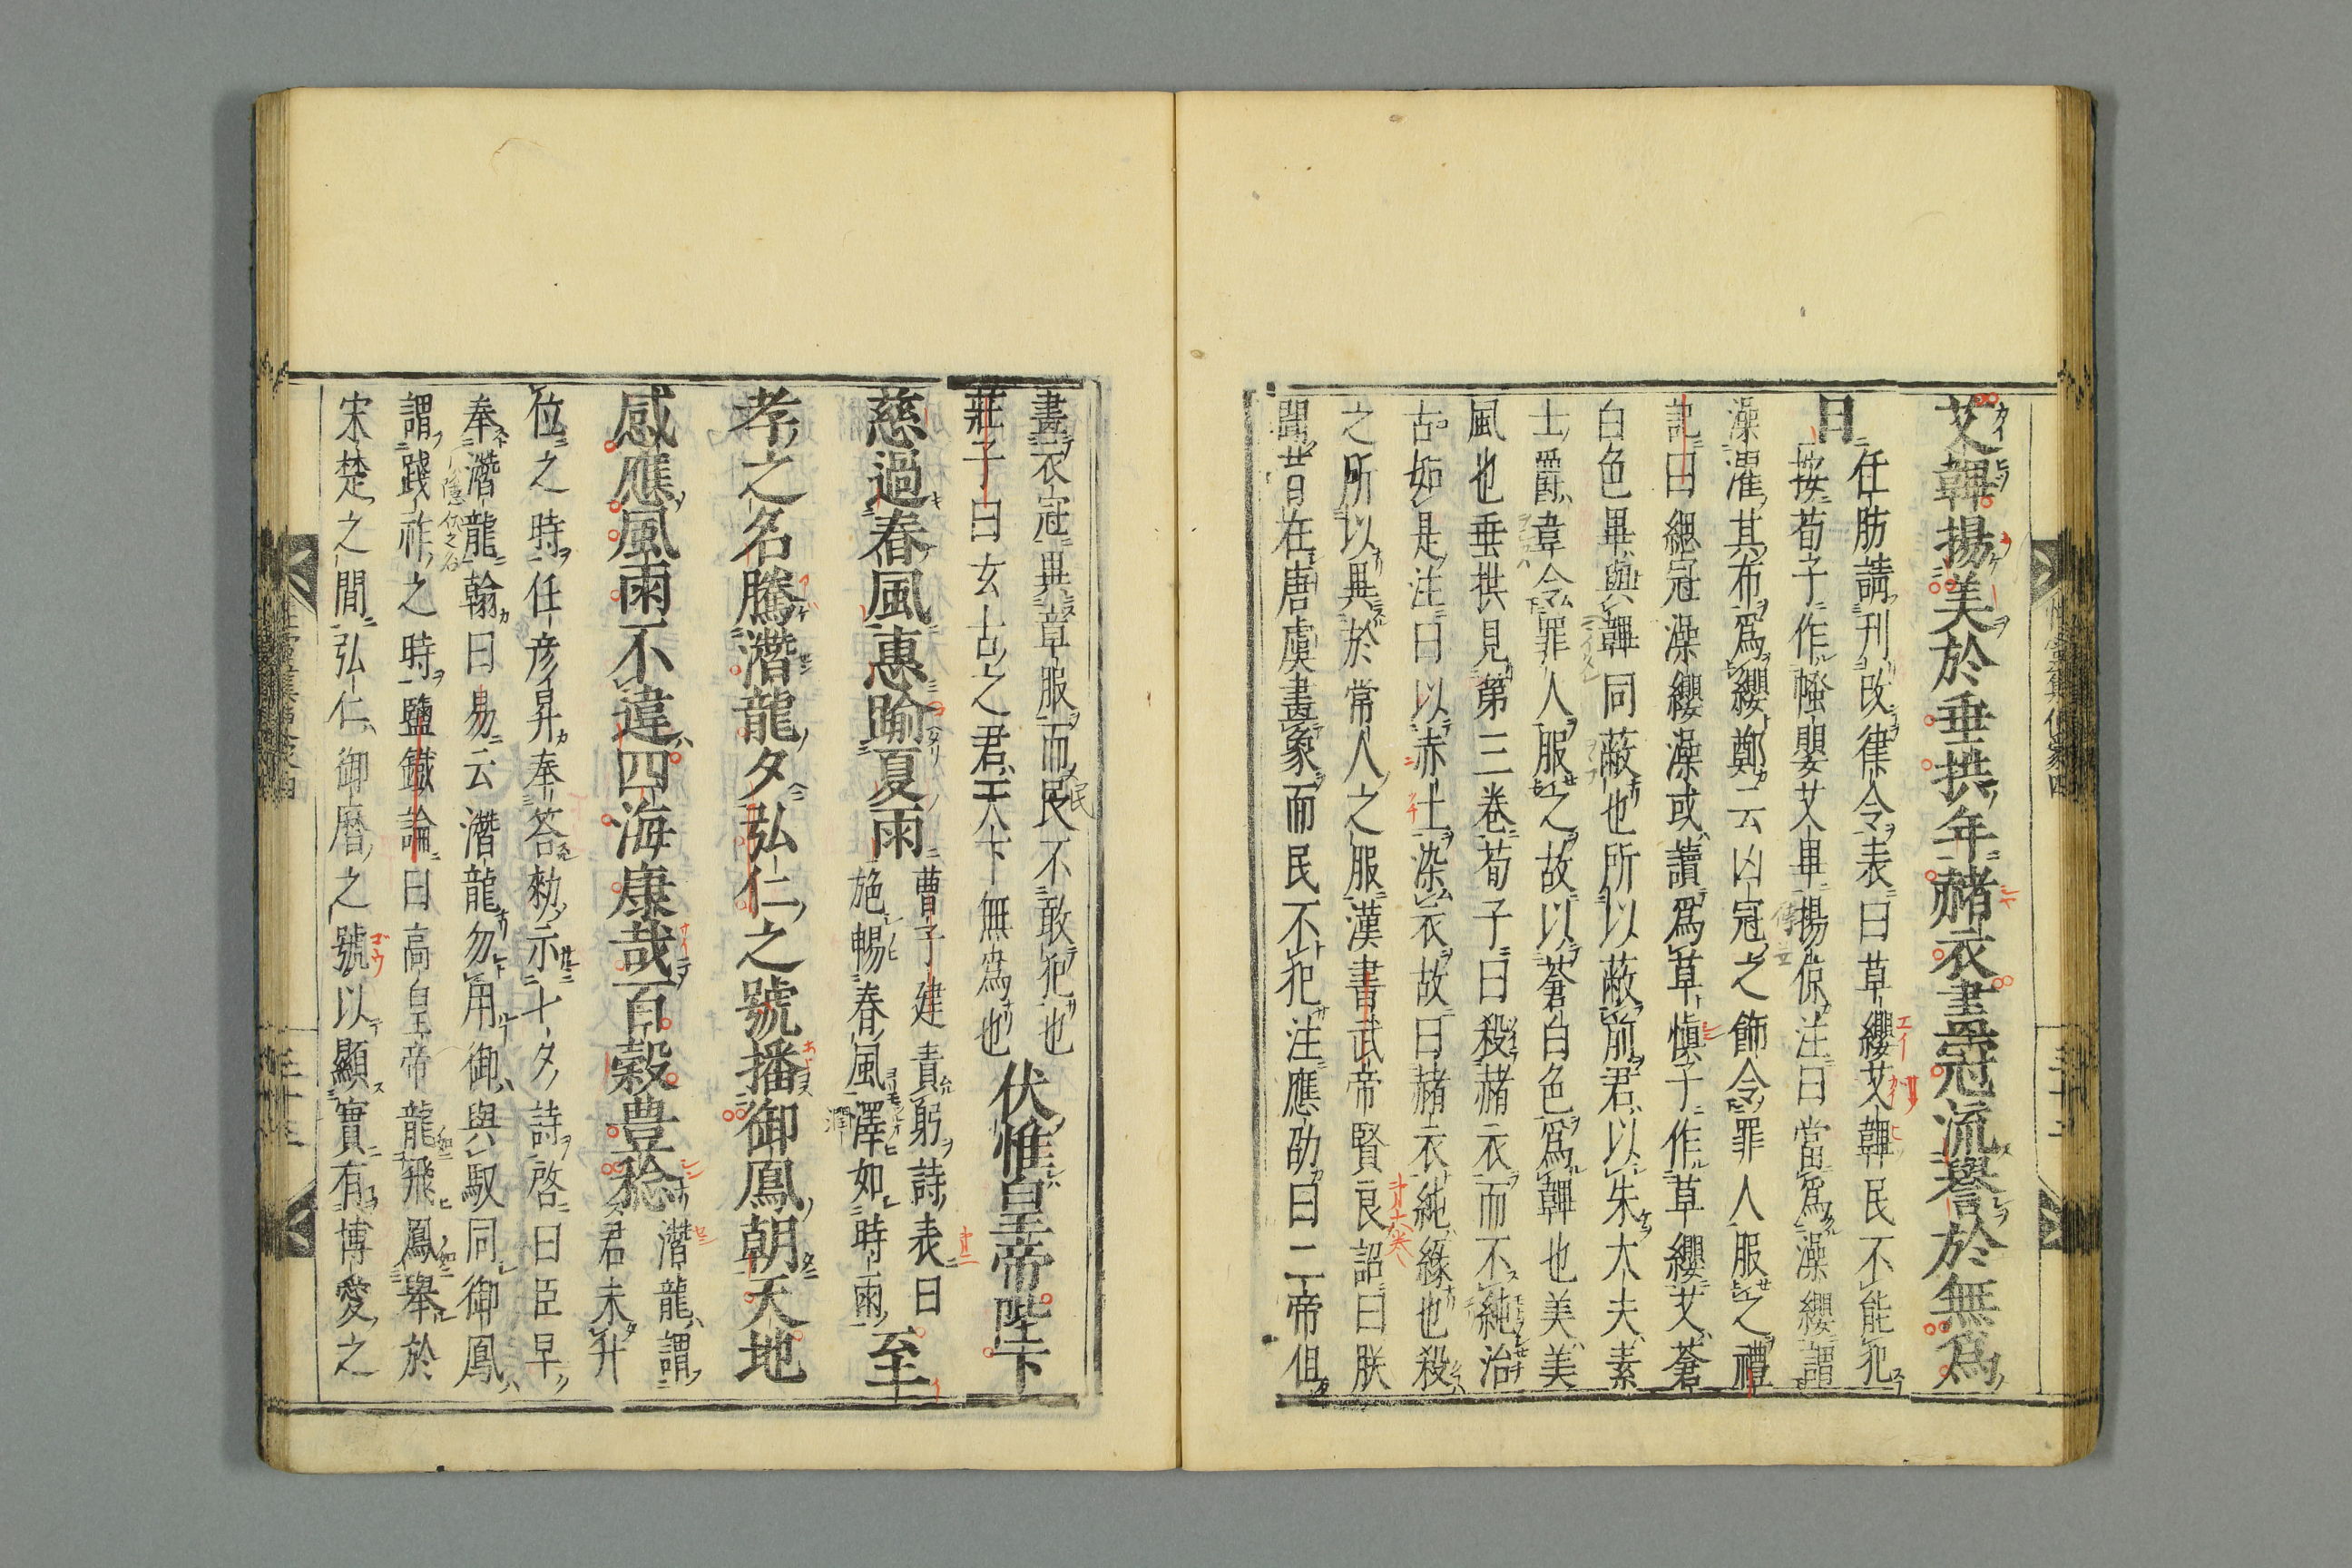 艾韠揚美於垂拱年赭衣畫冠流譽於無爲
日
任昉請刊改律令表曰草纓艾韠民不能犯
按荀子作慅嬰艾畢揚倞注曰當爲澡纓謂
澡濯其布爲纓鄭云凶冠之飾令罪人服之禮
記曰緦冠澡纓澡或讀爲草愼子作草纓艾蒼
白色畢與韠同蔽也所以蔽前君以朱大夫素
士爵韋令罪人服之故以蒼白色爲韠也美美
風也垂拱見第三卷荀子曰殺赭衣而不純治
古如是注曰以赤土染衣故曰赭衣純緣也殺
之所以異於常人之服漢書武帝賢良詔曰朕
聞昔在唐虞畫象而民不犯注應劭曰二帝但
畫衣冠異章服而民不敢犯也
莊子曰玄古之君天下無爲也伏惟皇帝陛下
慈過春風惠踰夏雨
曹子建責躬詩表曰
施暢春風澤如時雨
至
孝之名騰潛龍夕弘仁之號播御鳳朝天地
感應風雨不違四海康哉百穀豊稔
潛龍謂
君未升
位之時任彦昇奉答勅示七夕詩啓曰臣早
奉潛龍翰曰易云潛龍勿用御與馭同御鳳
謂踐祚之時鹽鐵論曰高皇帝龍飛鳳擧於
宋楚之間弘仁御曆之號以顯實有博愛之